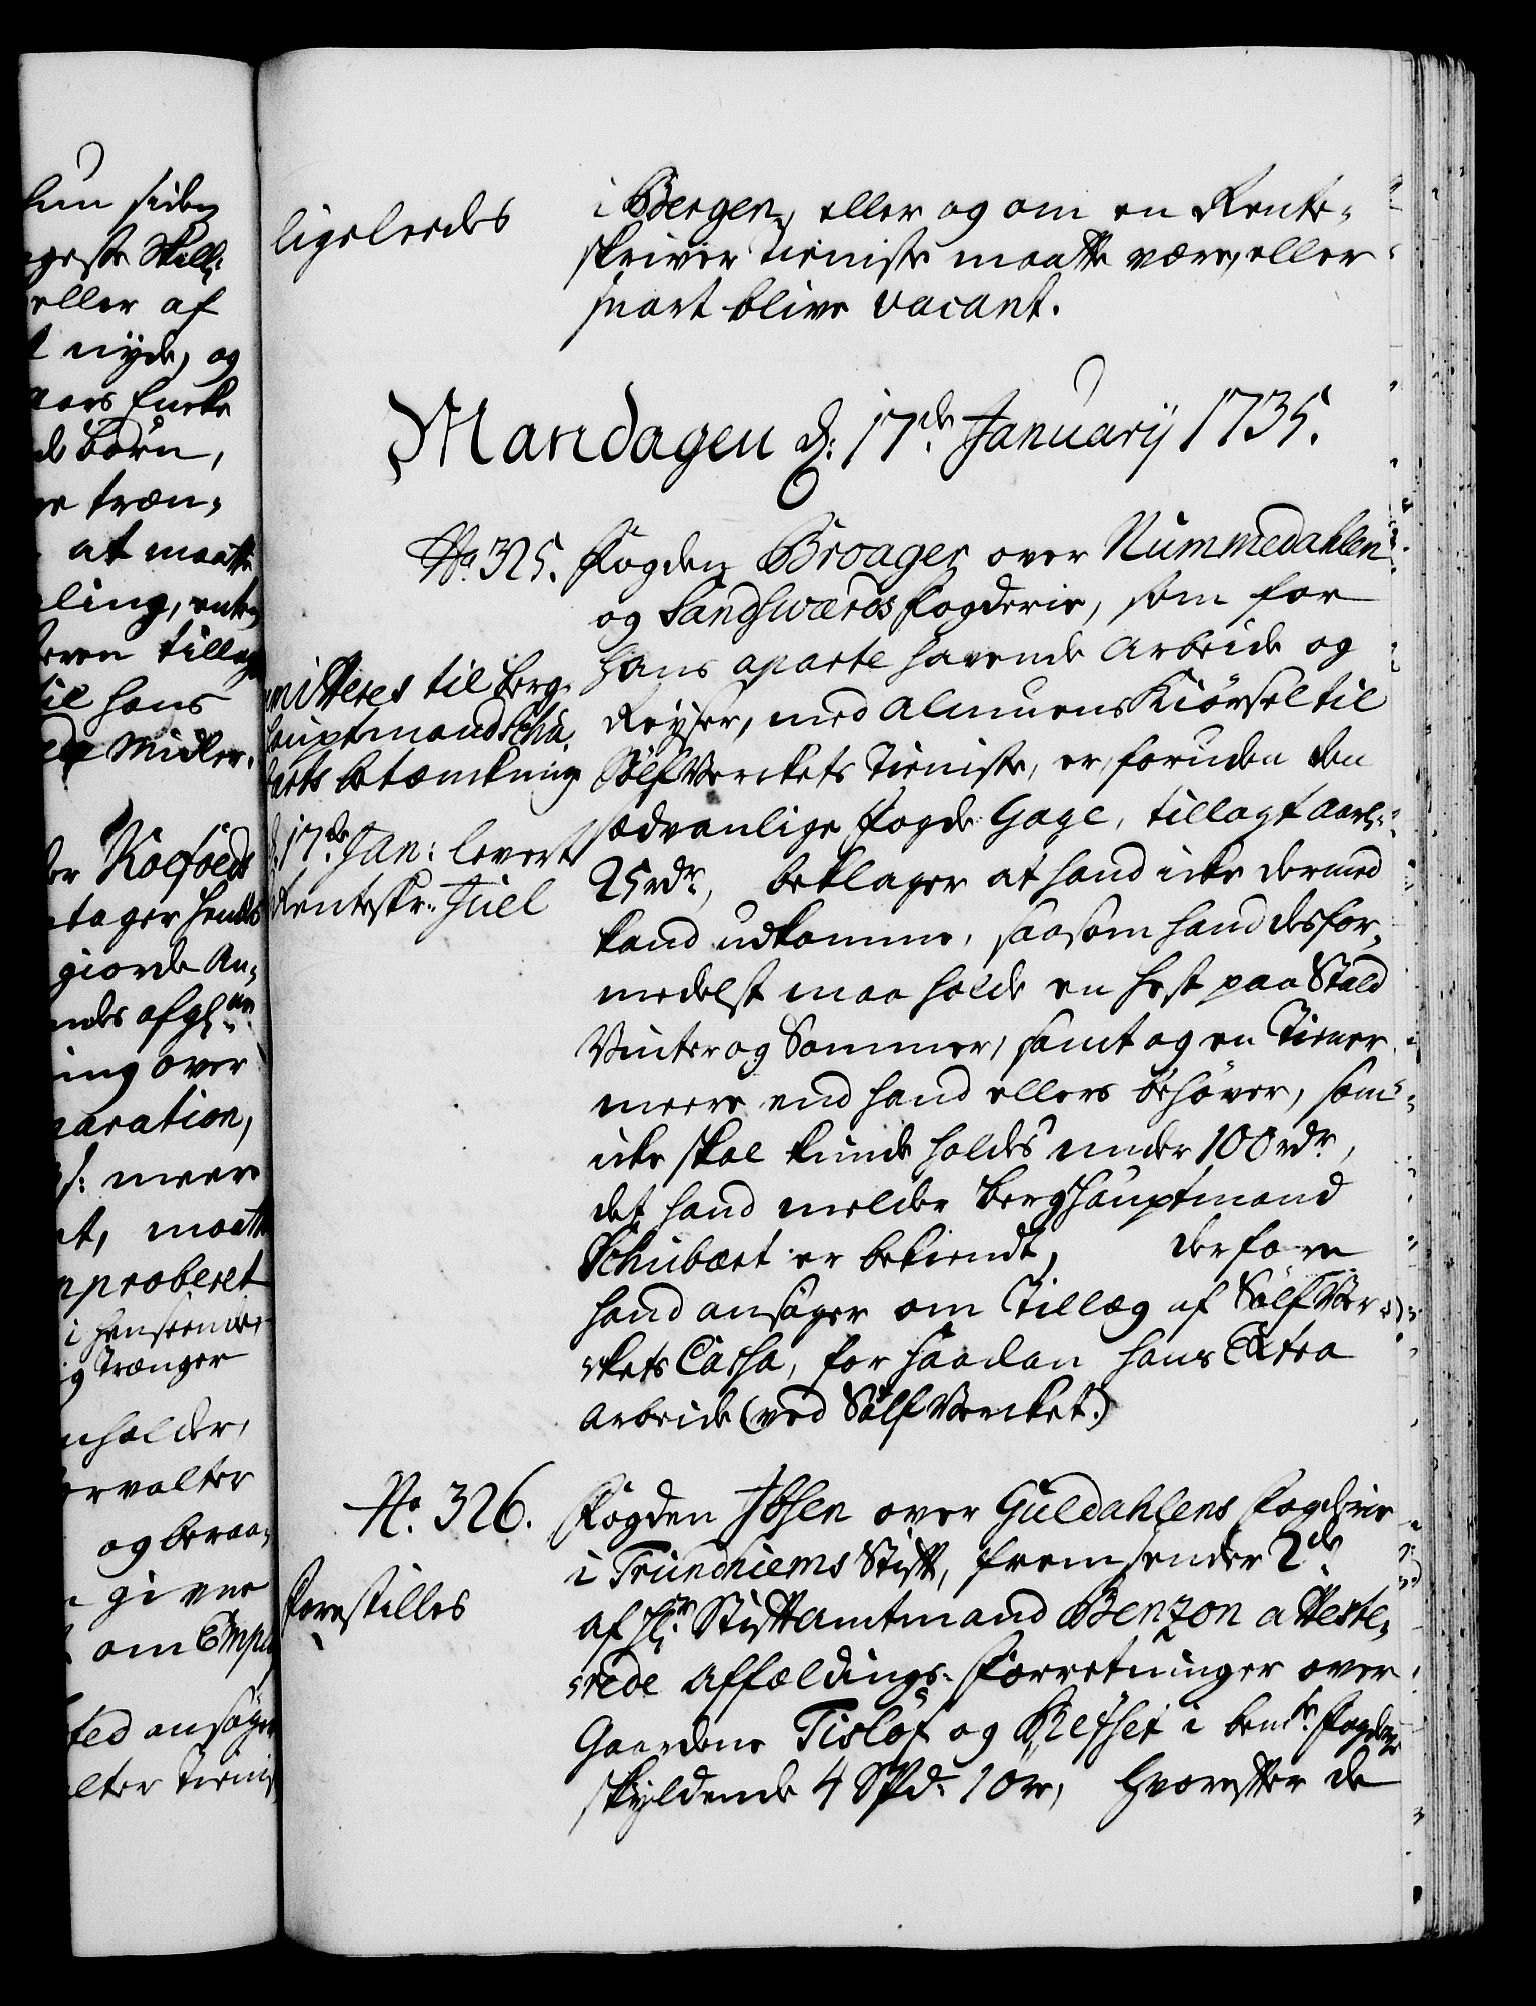 ligeleedes
i Bergen, eller og om en Rente-
skriver Tieniste maatte være, eller
snart blive vacant.
Mandagen d: 17de Januarij 1735.
No 325.
Fogden Broager over Nummedahlen
og Sandsværds Fogderie, som for
hans aparte havende Arbeide og
Reyser, med Almuens Kiörsel til
Sölfverckets Tieniste, er, foruden den
sædvanlige Fogde Gage, tillagt aarl:
25 rdr, beklager at hand icke dermed
kand udkomme, saasom hand desfor-
medelst maa holde en Hest paa Stald
Vinter og Sommer, samt og en Tiener
meere end hand ellers behöver, som
icke skal kunde holdes under 100 rdr,
det hand melder Berghauptmand
Schubært er bekiendt, derfore
hand ansöger om Tillæg af Sölfver-
ckets Cassa, for saadan hans Extra
Arbeide (ved Sölfvercket.)
mitteres til Berg-
hauptmand Schu-
berts betænckning
d: 17de Jan: levert
Renteskr: Juel
No. 326.
Fogden Ibsen over Guldahlens Fogderie
i Trundhiems Stift, fremsender 2de
af Hr. Stiftamtmand Benzon atteste-
rede Affældings-Forretninger over
Gaardene Tislöf og Refset i bemte Fogderie
skyldende 4 Spd: 1 öre, hvorefter de
Forestilles
hun siden
eller af
nyde, og
de Börn,
at maatte
til hans
Midler.
Koefoeds
tager hendes
giorde An-
over
meere
i henseende
Trænger
og beraa-
givne
ansöger